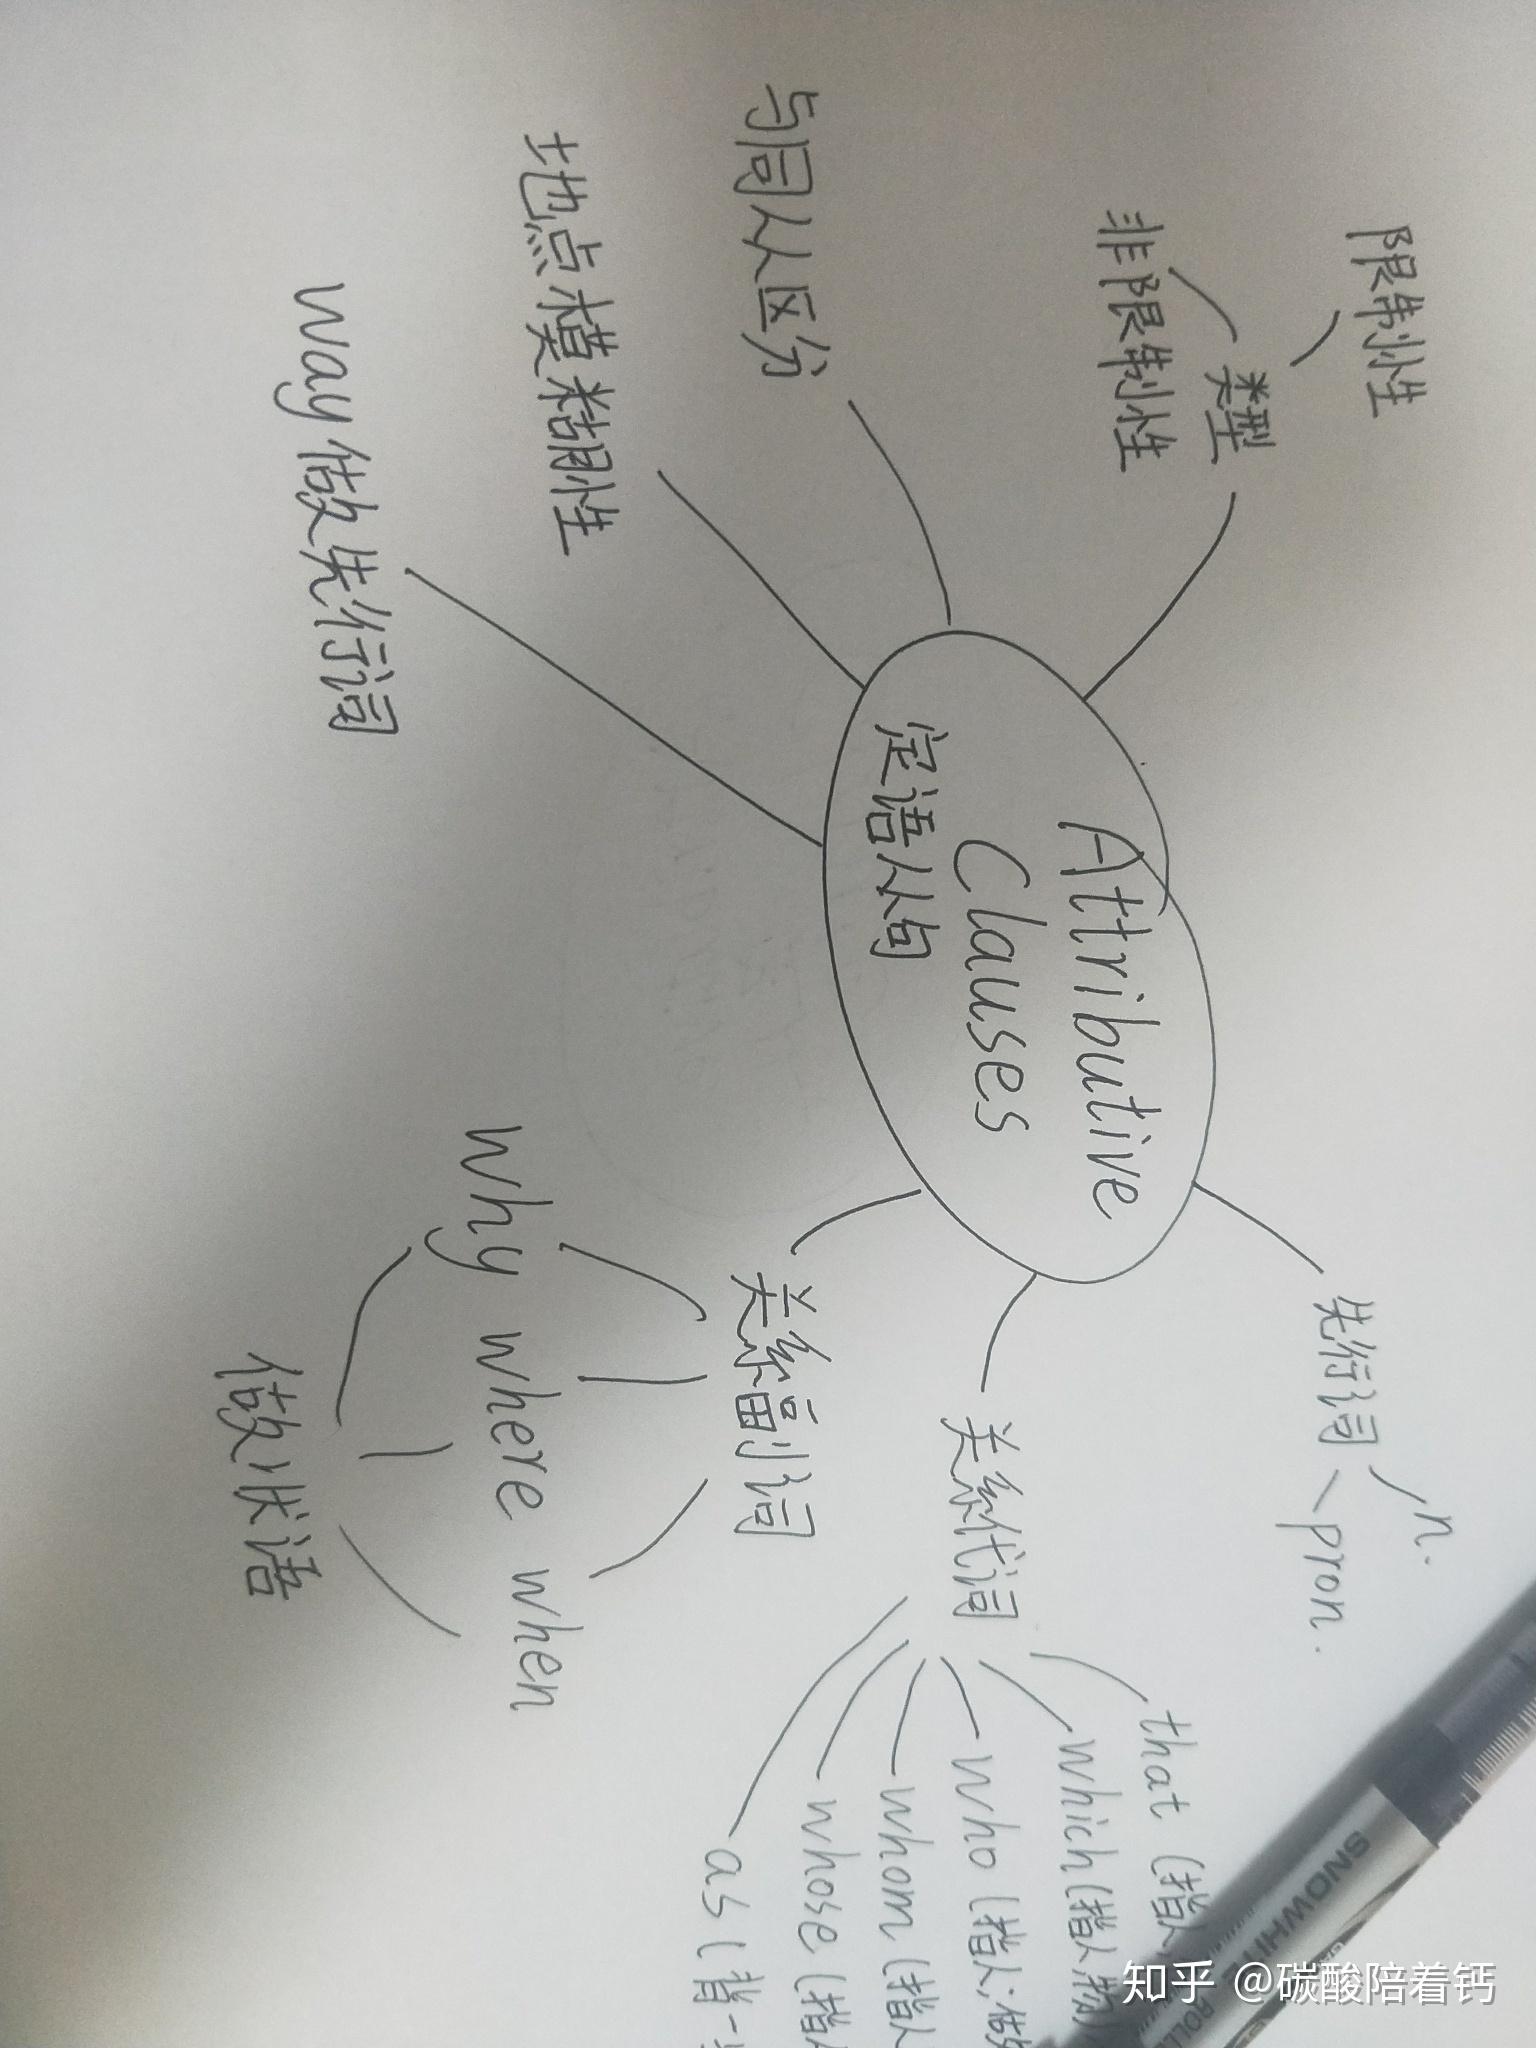 Attributive
Clauses
定语从句
先行词
n.
pron.
关系代词
that (指人
which (指人,物
who (指人;做
whom (指人
whose (指人
as (
关系副词
why where when
做状语
类型
限制性
非限制性
与同从区分
地点模糊性
way做先行词
SNOWHITE
知乎 @碳酸陪着钙